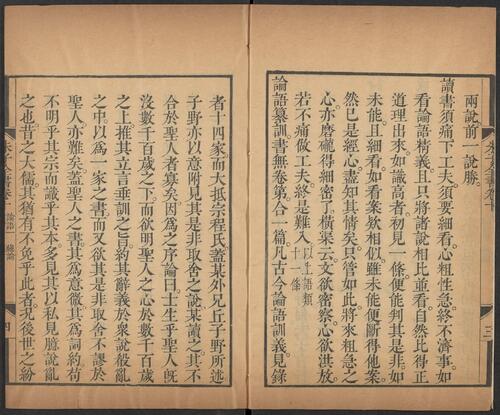 兩說前一說勝。
讀書須痛下工夫。須要細看。心粗性急。終不濟事。如
看論語精義。且只將諸說相比並看。自然比得正
道理出來。如識高者。初見一條。便能判其是非。如
未能。且細看。如看案欵相似。雖未能便斷得他案。
然已是經心盡知其情矣。只管如此。將來粗急之
心。亦磨礲得細密了。橫渠云。文欲密察。心欲洪放。
若不痛做工夫。終是難入。以上語類
十一條
論語纂訓書。無卷第。合一篇。凡古今論語訓義見錄
者十四家。而大抵宗程氏。蓋某外兄丘子野所述。
子野亦以意附見其是非取舍之說。某讀之。其不
合於聖人者寡矣。因爲之序論曰。士生乎聖人旣
沒數千百歲之下。而欲明聖人之心於數千百歲
之上。推其立言垂訓之旨。約其辭義於衆說殽亂
之中。以爲一家之書。而又欲其是非取舍不謬於
聖人。亦難矣。蓋聖人之書。其爲意微。其爲詞約。苟
不明乎其宗而識乎其本。多見其以私見臆說亂
之也。昔之大儒。其猶有不免乎此者。況後世之紛
論語 總論
四